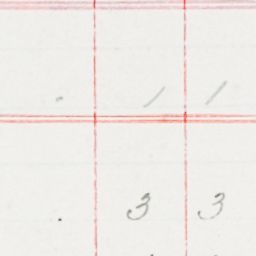 . / /
. 3 3